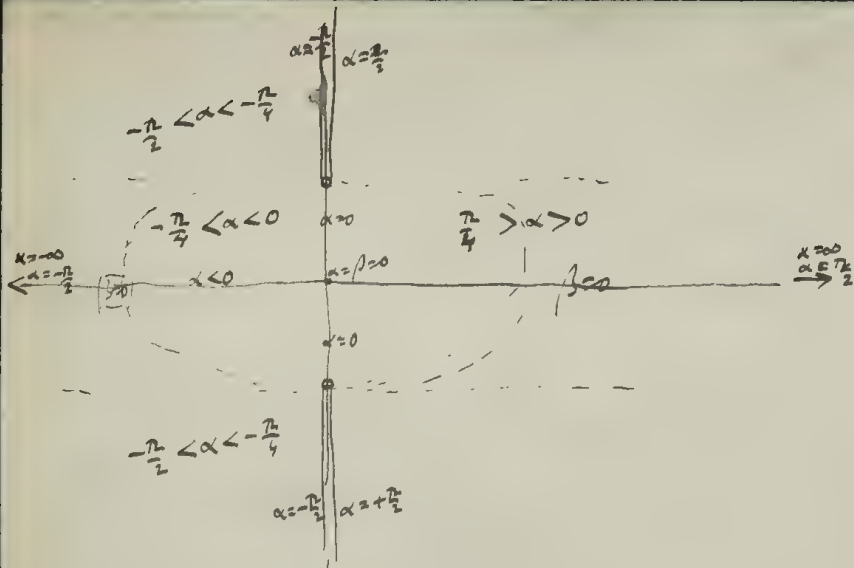 α=-π/2 α=π/2
-π/2 < α < -π/4
-π/4 < α < 0 α=0 π/4 > α > 0
x=-∞
α=-π/2 β=0 α<0 α=β=0 β=0 x=∞
α=π/2
α=0
-π/2 < α < -π/4
α=-π/2 α=+π/2